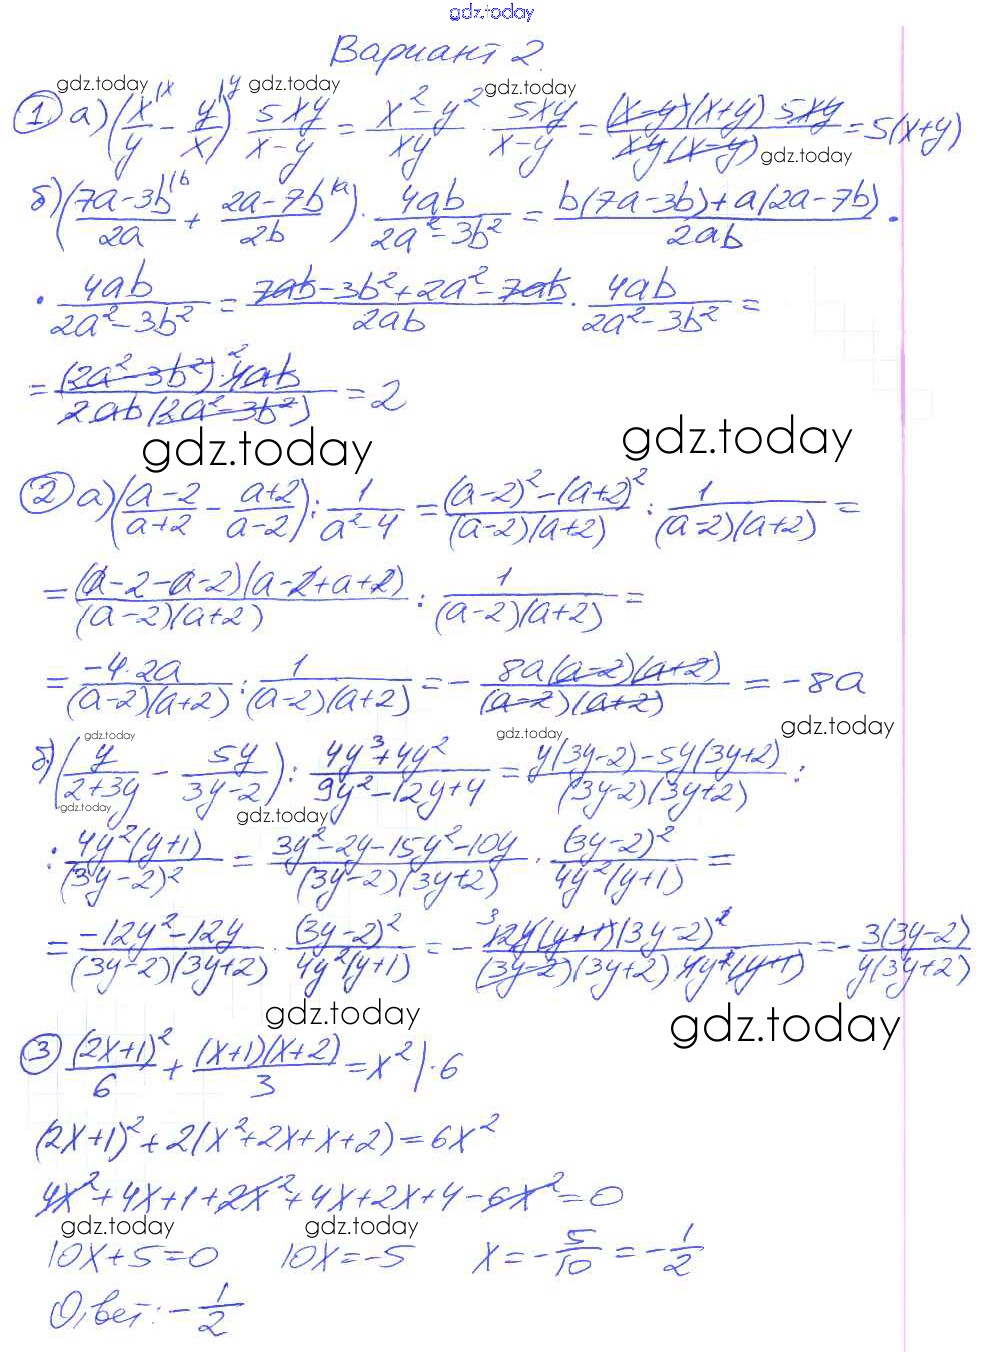 gdz.today
Вариант 2.
gdz.today gdz.today gdz.today
① а) (x/y |x - y/x |y) · 5xy/(x-y) = (x²-y²)/xy · 5xy/(x-y) = (x-y)(x+y) 5xy/(xy(x-y)) = 5(x+y)
gdz.today
б) ((7a-3b)/2a |b + (2a-7b)/2b |a) · 4ab/(2a²-3b²) = (b(7a-3b)+a(2a-7b))/2ab ·
· 4ab/(2a²-3b²) = (7ab-3b²+2a²-7ab)/2ab · 4ab/(2a²-3b²) =
= (2a²-3b²)·4ab 2/(2ab(2a²-3b²)) = 2
gdz.today gdz.today
② а) ((a-2)/(a+2) - (a+2)/(a-2)) : 1/(a²-4) = ((a-2)²-(a+2)²)/((a-2)(a+2)) : 1/((a-2)(a+2)) =
= (a-2-a-2)(a-2+a+2)/((a-2)(a+2)) : 1/((a-2)(a+2)) =
= -4·2a/((a-2)(a+2)) : 1/((a-2)(a+2)) = - 8a(a-2)(a+2)/((a-2)(a+2)) = -8a
gdz.today gdz.today gdz.today
б) (y/(2+3y) - 5y/(3y-2)) : (4y³+4y²)/(9y²-12y+4) = (y(3y-2)-5y(3y+2))/((3y-2)(3y+2)) :
gdz.today gdz.today
: 4y²(y+1)/(3y-2)² = (3y²-2y-15y²-10y)/((3y-2)(3y+2)) · (3y-2)²/(4y²(y+1)) =
= (-12y²-12y)/((3y-2)(3y+2)) · (3y-2)²/(4y²(y+1)) = - 3 12y(y+1)(3y-2)²/((3y-2)(3y+2) 4y²(y+1)) = - 3(3y-2)/(y(3y+2))
gdz.today gdz.today
③ (2x+1)²/6 + (x+1)(x+2)/3 = x² | ·6
(2x+1)²+2(x²+2x+x+2)=6x²
4x²+4x+1+2x²+4x+2x+4-6x²=0
gdz.today gdz.today
10x+5=0 10x=-5 x=-5/10=-1/2
Ответ: -1/2